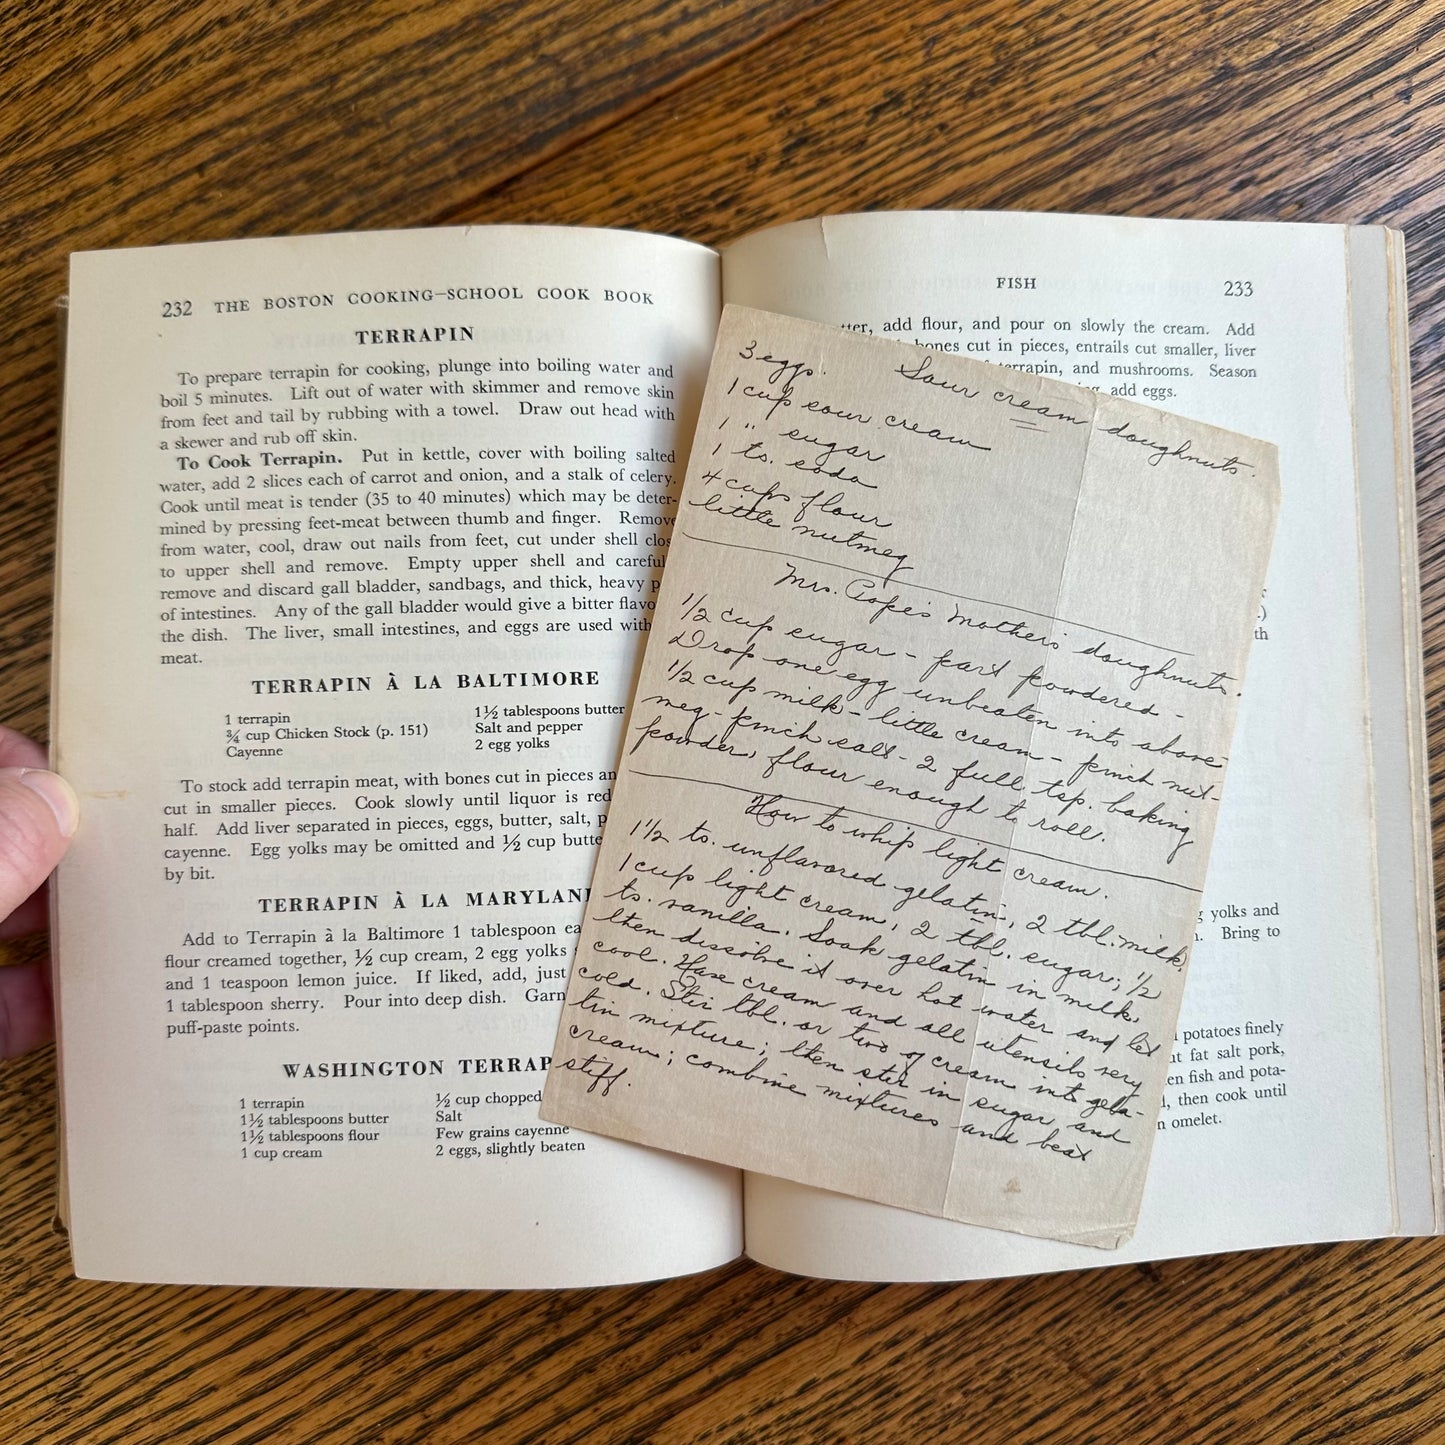 232 THE BOSTON COOKING-SCHOOL COOK BOOK
TERRAPIN
To prepare terrapin for cooking, plunge into boiling water and
boil 5 minutes. Lift out of water with skimmer and remove skin
from feet and tail by rubbing with a towel. Draw out head with
a skewer and rub off skin.
To Cook Terrapin. Put in kettle, cover with boiling salted
water, add 2 slices each of carrot and onion, and a stalk of celery.
Cook until meat is tender (35 to 40 minutes) which may be deter-
mined by pressing feet-meat between thumb and finger. Remove
from water, cool, draw out nails from feet, cut under shell clos
to upper shell and remove. Empty upper shell and careful
remove and discard gall bladder, sandbags, and thick, heavy p
of intestines. Any of the gall bladder would give a bitter flavo
the dish. The liver, small intestines, and eggs are used with
meat.
TERRAPIN À LA BALTIMORE
1 terrapin
¾ cup Chicken Stock (p. 151)
Cayenne
1½ tablespoons butter
Salt and pepper
2 egg yolks
To stock add terrapin meat, with bones cut in pieces an
cut in smaller pieces. Cook slowly until liquor is red
half. Add liver separated in pieces, eggs, butter, salt, p
cayenne. Egg yolks may be omitted and ½ cup butte
by bit.
TERRAPIN À LA MARYLAN
Add to Terrapin à la Baltimore 1 tablespoon ea
flour creamed together, ½ cup cream, 2 egg yolks
and 1 teaspoon lemon juice. If liked, add, just
1 tablespoon sherry. Pour into deep dish. Garn
puff-paste points.
WASHINGTON TERRAP
1 terrapin
1½ tablespoons butter
1½ tablespoons flour
1 cup cream
½ cup chopped
Salt
Few grains cayenne
2 eggs, slightly beaten
FISH 233
tter, add flour, and pour on slowly the cream. Add
bones cut in pieces, entrails cut smaller, liver
terrapin, and mushrooms. Season
add eggs.
Sour cream doughnuts.
3 eggs.
1 cup sour cream
1 " sugar
1 ts. soda
4 cups flour
little nutmeg
Mrs. Mother's doughnuts.
1/2 cup sugar - part powdered -
Drop one egg unbeaten into above
1/2 cup milk - little cream - pinch nut-
meg - pinch salt - 2 full tsp. baking
powder, flour enough to roll.
How to whip light cream.
1 1/2 ts. unflavored gelatin, 2 tbl. milk,
1 cup light cream, 2 tbl. sugar; 1/2
ts. vanilla. Soak gelatin in milk,
then dissolve it over hot water and let
cool. Have cream and all utensils very
cold. Stir tbl. or two of cream into gela-
tin mixture; then stir in sugar and
cream; combine mixtures and beat
stiff.
yolks and
Bring to
potatoes finely
fat salt pork,
en fish and pota-
, then cook until
n omelet.